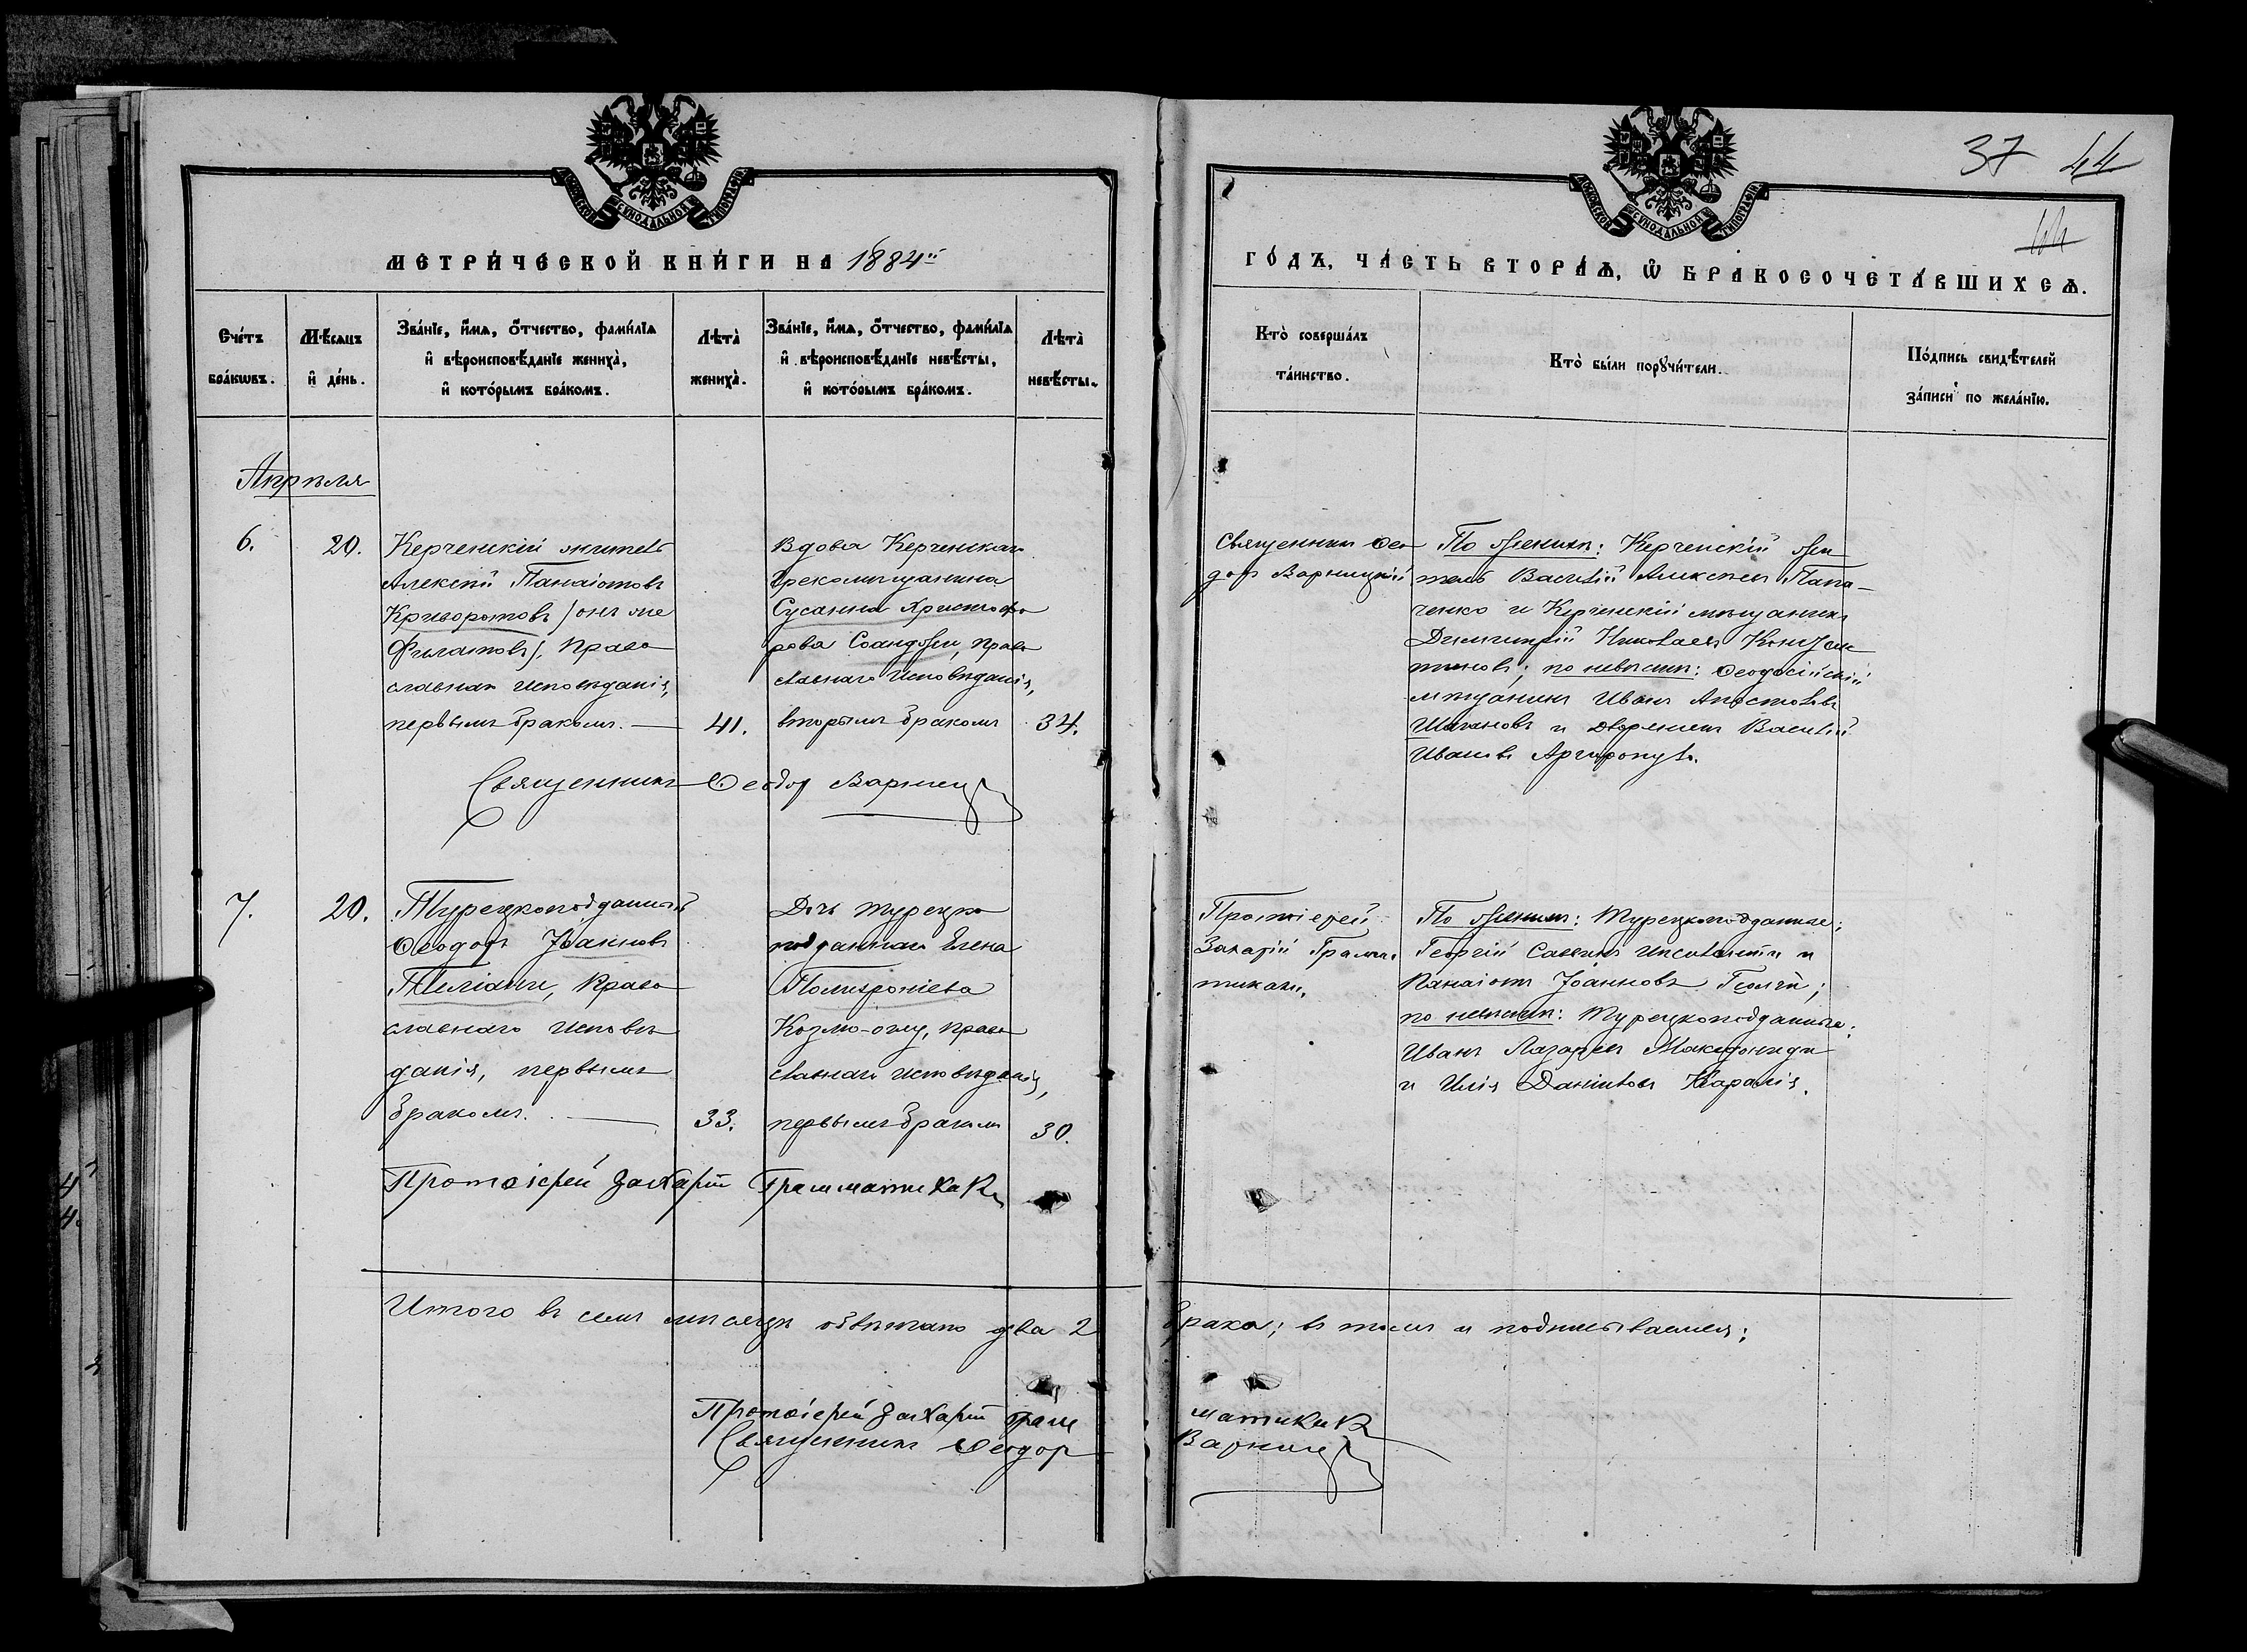 37 44
МОСКОВСКОЙ СѴНОДАЛЬНОЙ ТИПОГРАФІИ
МОСКОВСКОЙ СѴНОДАЛЬНОЙ ТИПОГРАФІИ
МЕТРИ́ЧЕСКОЙ КНИ́ГИ НА 1884й
ГО́ДЪ, ЧА́СТЬ ВТОРА́Ѧ, Ѽ БРАКОСОЧЕТА́ВШИХСѦ.
Сче́тъ
бра́кѡвъ.
Мѣ́сѧцъ
и҆ де́нь.
Зва́нїе, и҆́мѧ, ѻ҆́тчество, фами́лїѧ
и҆ вѣроисповѣ́данїе жениха̀,
и҆ кото́рымъ бра́комъ.
Лѣ́та
жениха̀.
Зва́нїе, и҆́мѧ, ѻ҆́тчество, фами́лїѧ
и҆ вѣроисповѣ́данїе невѣ́сты,
и҆ кото́рымъ бра́комъ.
Лѣ́та
невѣ́сты.
Кто̀ соверша́лъ
та́инство.
Кто̀ бы́ли порꙋчи́тели.
По́дпись свидѣ́телей
за́писи по жела́нїю.
Апрѣля
6.
20.
Керченскій житель
Алексѣй Панаіотовъ
Криворотовъ (онъ же
Филатовъ), право
славнаго исповѣданія,
первымъ бракомъ.
41.
Вдова Керченскаго
грекомѣщанина
Сусанна Христофо
рова, право
славнаго исповѣданія,
вторымъ бракомъ
34.
Священникъ Ѳео
доръ Варницкій
По женихѣ: Керченскій жи
тель Василій Алексѣевъ Папа-
ченко и Керченскій мѣщанинъ
Димитрій Николаевъ Констан
тиновъ; по невѣстѣ: Ѳеодосійскій
мѣщанинъ Иванъ Апостоловъ
Шагановъ и дворянинъ Василій
Ивановъ Аргиропуло.
Священникъ Ѳеодор Варниц
7.
20.
Турецкоподданный
Ѳеодоръ Іоанновъ
право
славнаго исповѣ
данія, первымъ
бракомъ.
33.
Дочь турецко
подданнаго Елена
Полихроніева
Козмо-оглу, право
славнаго исповѣданія,
первымъ бракомъ
30.
Протоіерей
Захарій Грамма
тикаки.
По женихѣ: Турецкоподданные:
Георгій Саввинъ и
Панаіотъ Іоанновъ
по невѣстѣ: Турецкоподданные:
Иванъ Лазаревъ Македониди
и Илія Даніиловъ Карапія.
Протоіерей Захарій Грамматикаки
Итого въ семъ мѣсяцѣ обвѣнчано два 2
брака; въ томъ и подписываемся:
Протоіерей Захарій Грам
матикаки
Священникъ Ѳеодор
Варниц